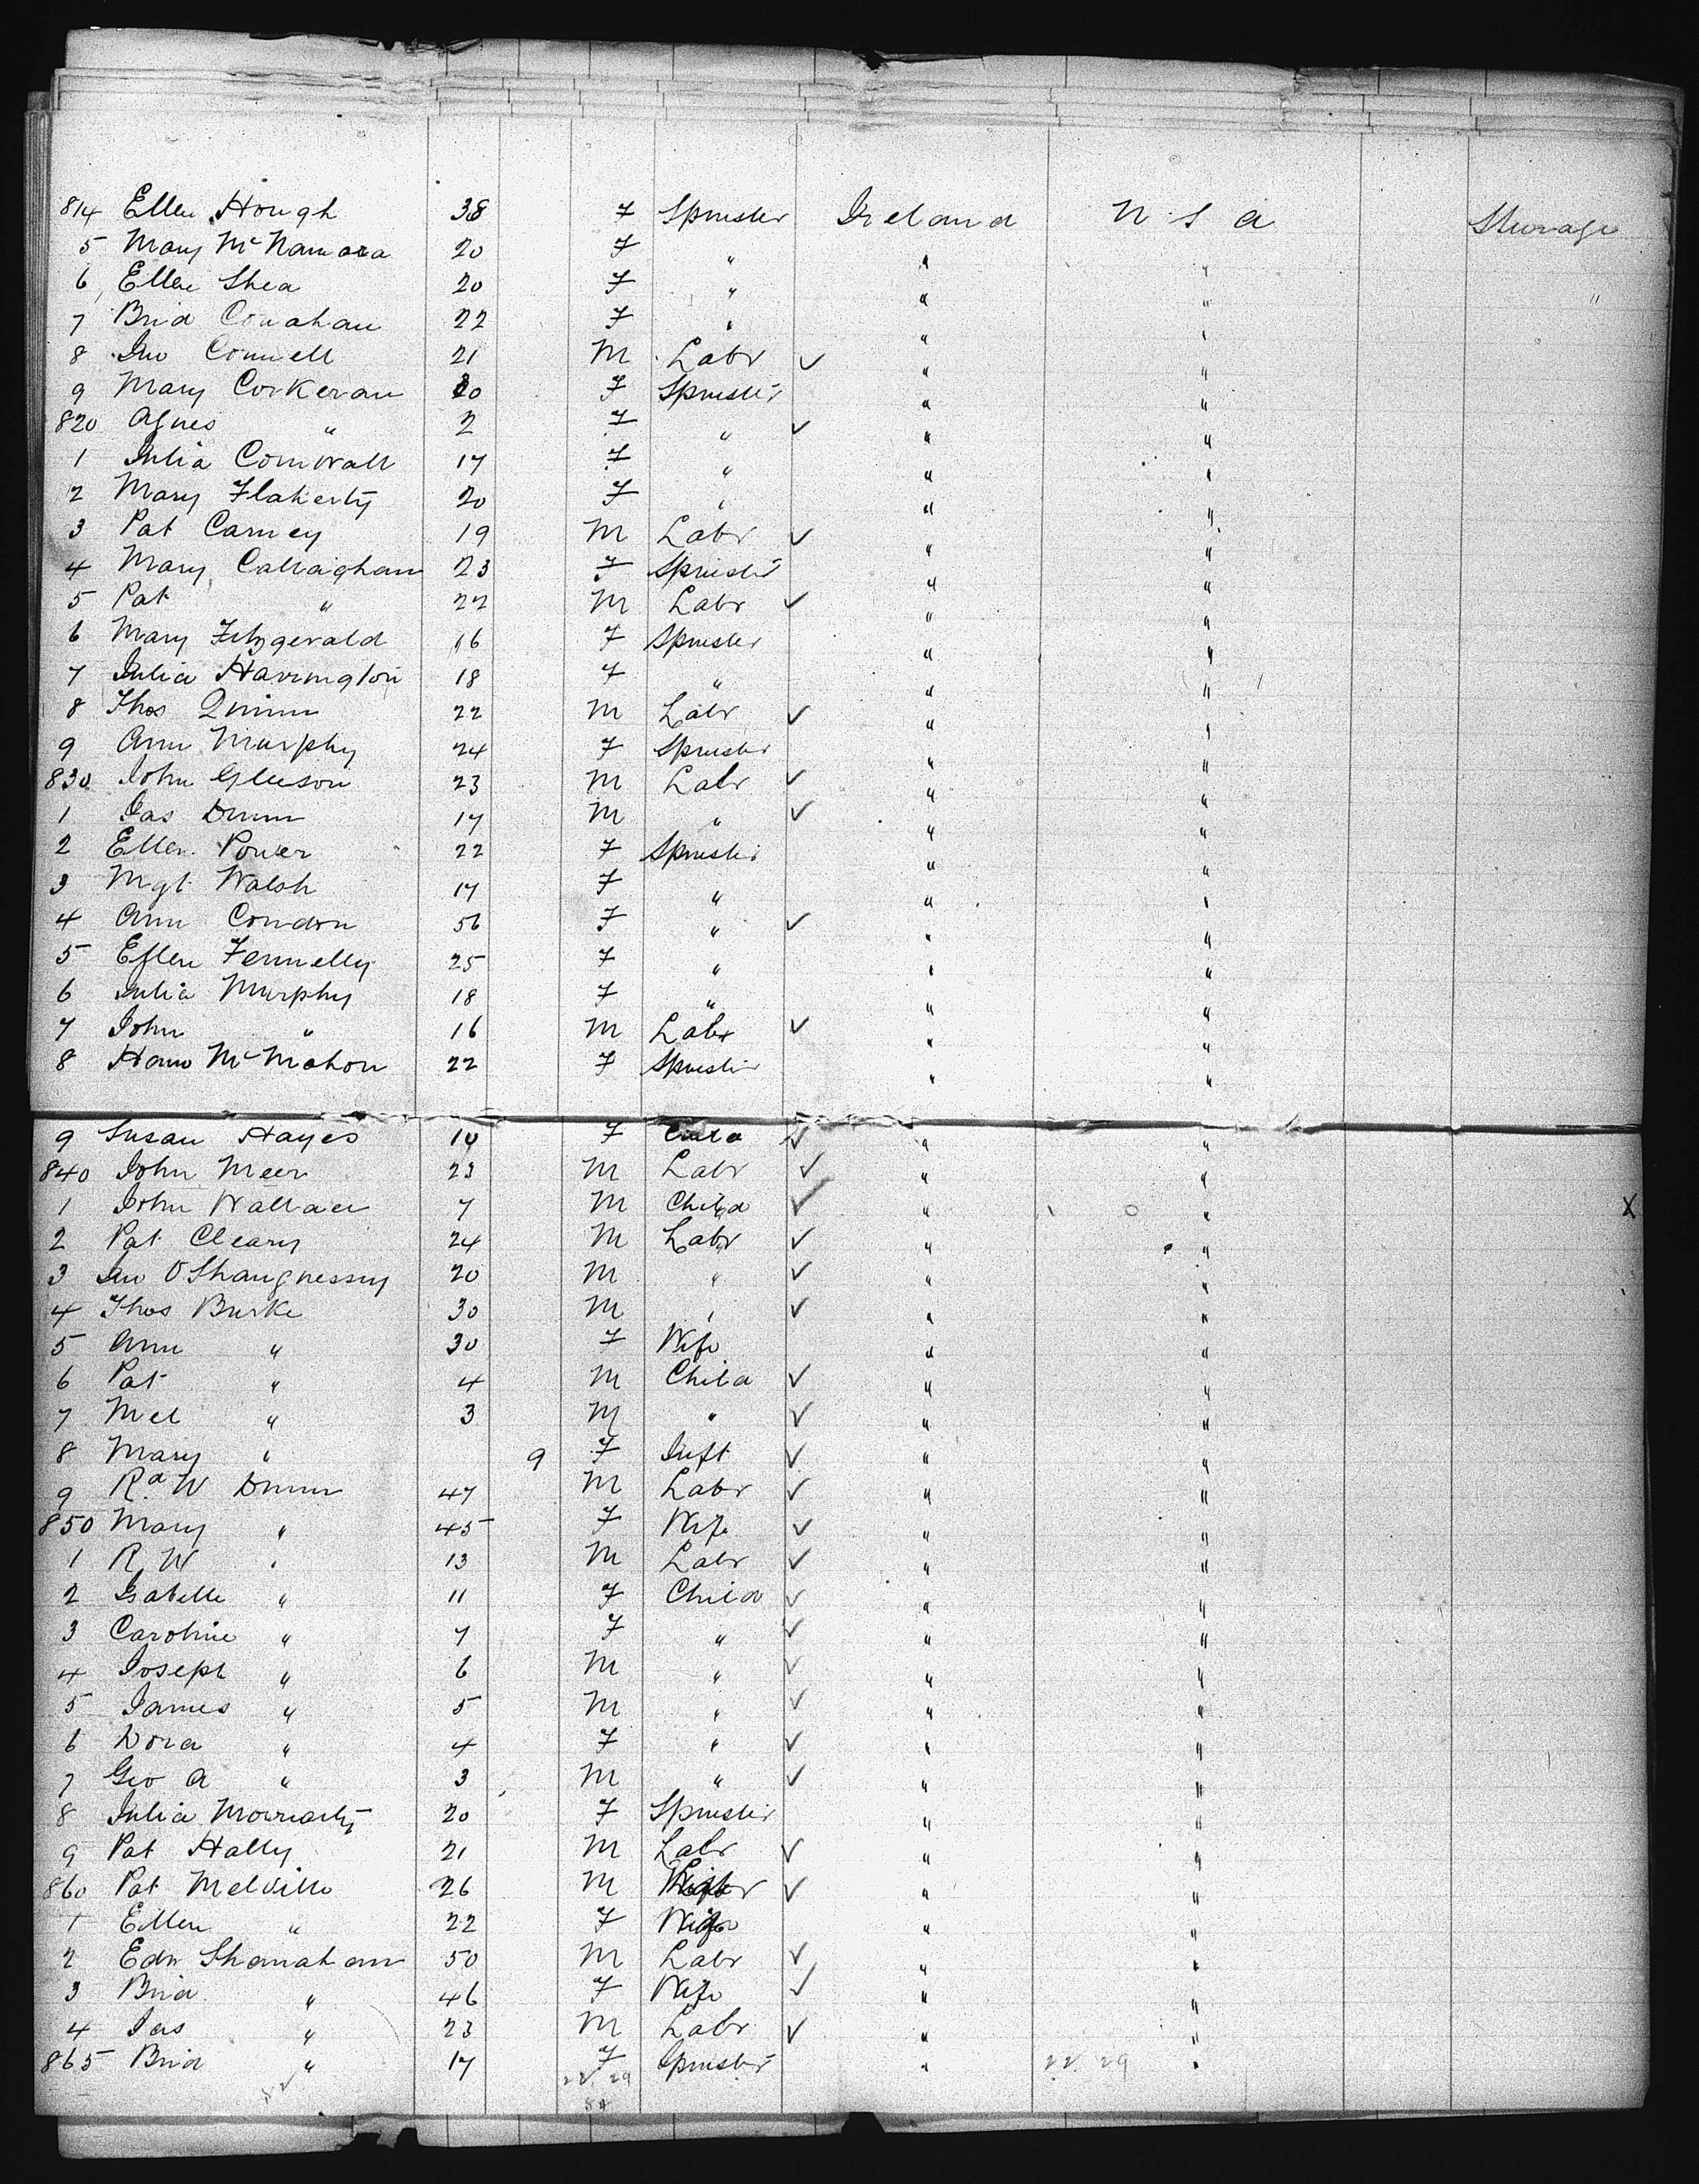 814 Ellen Hough 38 F Spinster Ireland U S A Steerage
5 Mary McNamara 20 F " " "
6 Ellen Shea 20 F " " " "
7 Brid Conahan 22 F " " "
8 Jno Connell 21 M Labr ✓ " "
9 Mary Corkeran 20 F Spinster " "
820 Agnes " 2 F " ✓ " "
1 Julia Cornwall 17 F " " "
2 Mary Flaherty 20 F " " "
3 Pat Carney 19 M Labr ✓ " "
4 Mary Callaighan 23 F Spinster " "
5 Pat " 22 M Labr ✓ " "
6 Mary Fitzgerald 16 F Spinster " "
7 Julia Harrington 18 F " " "
8 Thos Quinn 22 M Labr ✓ " "
9 Ann Murphy 24 F Spinster " "
830 John Gleeson 23 M Labr ✓ " "
1 Jas Dunn 17 M " ✓ " "
2 Ellen Power 22 F Spinster " "
3 Mgt Walsh 17 F " " "
4 Ann Condon 56 F " ✓ " "
5 Ellen Fennelly 25 F " " "
6 Julia Murphy 18 F " " "
7 John " 16 M Labr ✓ " "
8 Hano McMahon 22 F Spinster " "
9 Susan Hayes 10 F Child ✓ " "
840 John Meer 23 M Labr ✓ " "
1 John Wallace 7 M Child ✓ " " X
2 Pat Cleary 24 M Labr ✓ " "
3 Jno O'Shaugnessy 20 M " ✓ " "
4 Thos Burke 30 M " ✓ " "
5 Ann " 30 F Wife " "
6 Pat " 4 M Child ✓ " "
7 Mcl " 3 M " ✓ " "
8 Mary " 9 F Inft ✓ " "
9 Rd W Dunn 47 M Labr ✓ " "
850 Mary " 45 F Wife ✓ " "
1 R W " 13 M Labr ✓ " "
2 Isabelle " 11 F Child ✓ " "
3 Caroline " 7 F " ✓ " "
4 Joseph " 6 M " ✓ " "
5 James " 5 M " ✓ " "
6 Dora " 4 F " ✓ " "
7 Geo A " 3 M " ✓ " "
8 Julia Mowriarty 20 F Spinster " "
9 Pat Hally 21 M Labr ✓ " "
860 Pat Melville 26 M ✓ " "
1 Ellen " 22 F Wife " "
2 Edw Shanahan 50 M Labr ✓ " "
3 Brid " 46 F Wife ✓ " "
4 Jas " 23 M Labr ✓ " "
865 Brid " 17 F Spinster " "
22 29 22 29